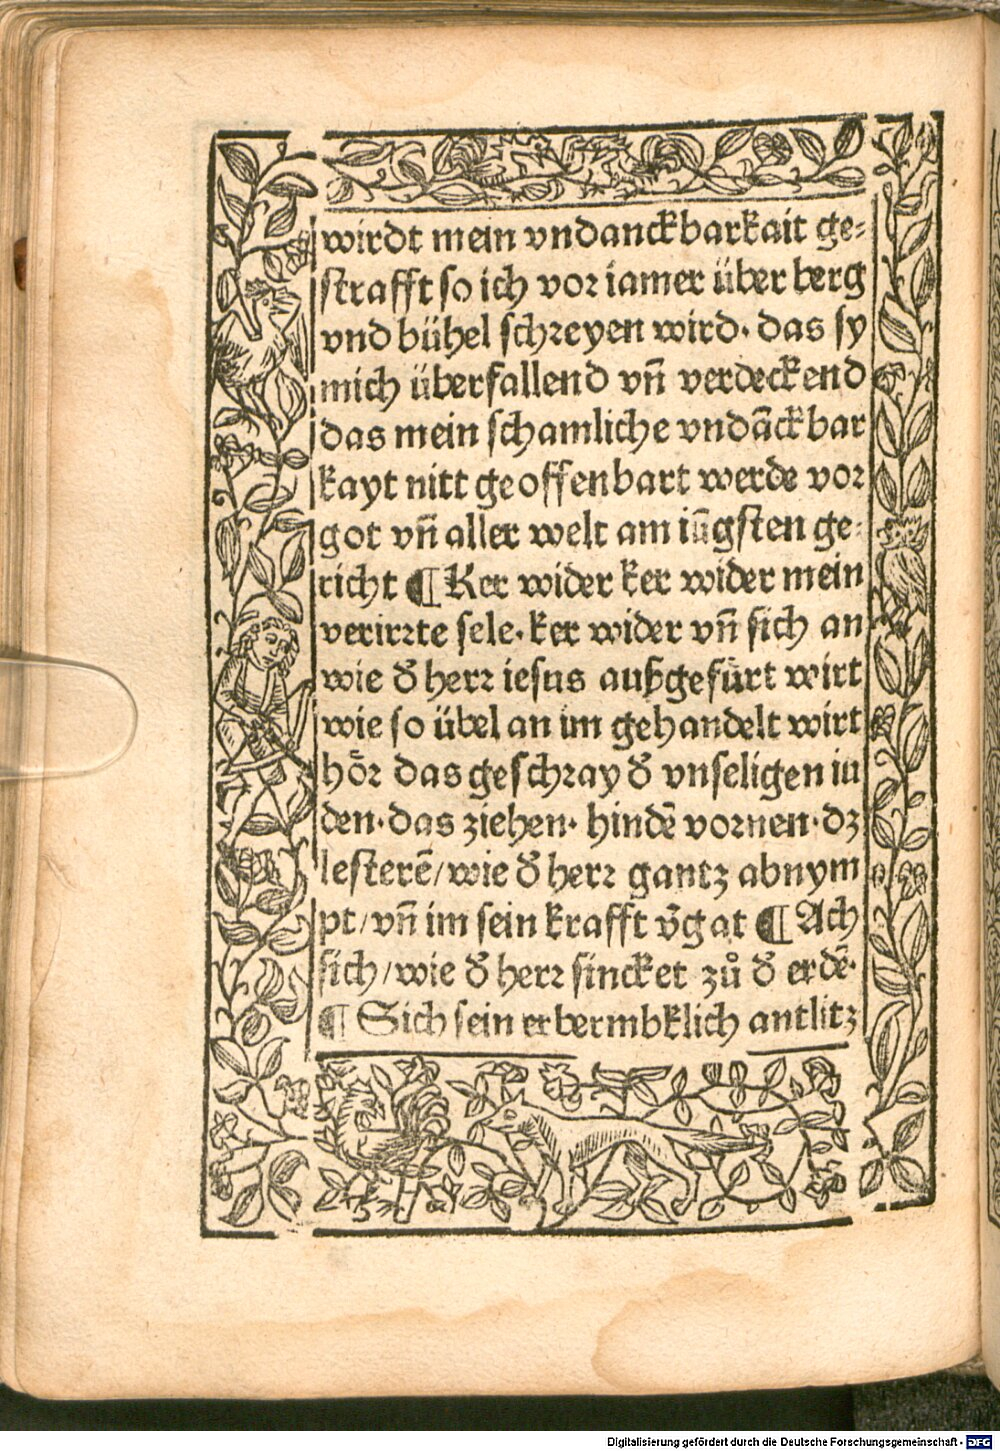 wirdt mein vndanckbarkait ge⸗
strafft so ich vor iamer über berg
vnd bühel schreyen wird. das sy
mich überfallend vn̄ verdeckend
das mein schamliche vndāckbar
kayt nitt geoffenbart werde vor
got vn̄ aller welt am iūgsten ge⸗
richt ¶ Ker wider ker wider mein
verirrte sele. ker wider vn̄ sich an
wie d̄ herr iesus außgefürt wirt
wie so übel an im gehandelt wirt
hör das geschray d̄ vnseligen iu
den. das ziehen. hindē vornen. dz
lesterē/ wie d̄ herr gantz abnym
pt/ vn̄ im sein krafft v̄gat ¶ Ach
sich/ wie d̄ herr sincket zů d̄ erdē.
¶ Sich sein erbermbklich antlitz
Digitalisierung gefördert durch die Deutsche Forschungsgemeinschaft - DFG